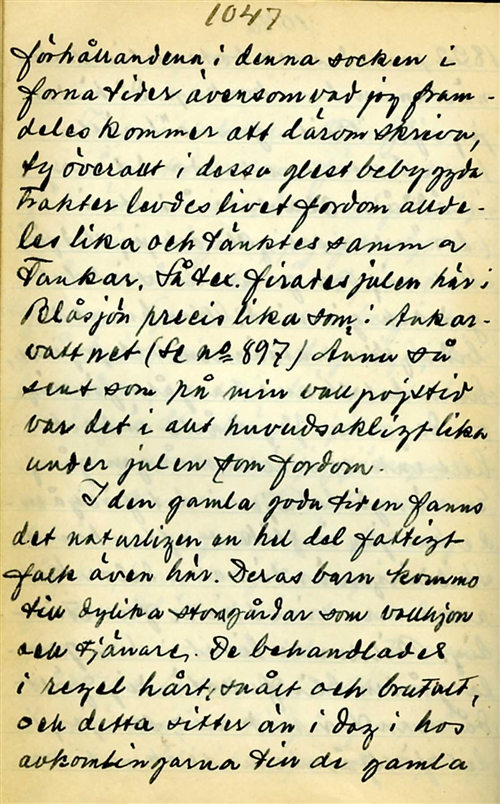 1047
förhållandena i denna socken i
forna tider ävensom vad jag fram-
deles kommer att därom skriva,
ty överallt i dessa glest bebyggda
trakter levdes livet fordom allde-
les lika och tänktes samma
tankar. Så tex. firades julen här i
Blåsjön precis lika som i Ankar-
vattnet (Se nº 897) Ännu så
sent som på min vallpojstid
var det i allt huvudsakligt lika
under julen som fordom.
I den gamla goda tiden fanns
det naturligen en hel del fattigt
folk även här. Deras barn kommo
till dylika storgårdar som vallhjon
och tjänare. De behandlades
i regel hårt, snålt och brutalt,
och detta sitter än i dag i hos
avkomlingarna till de gamla